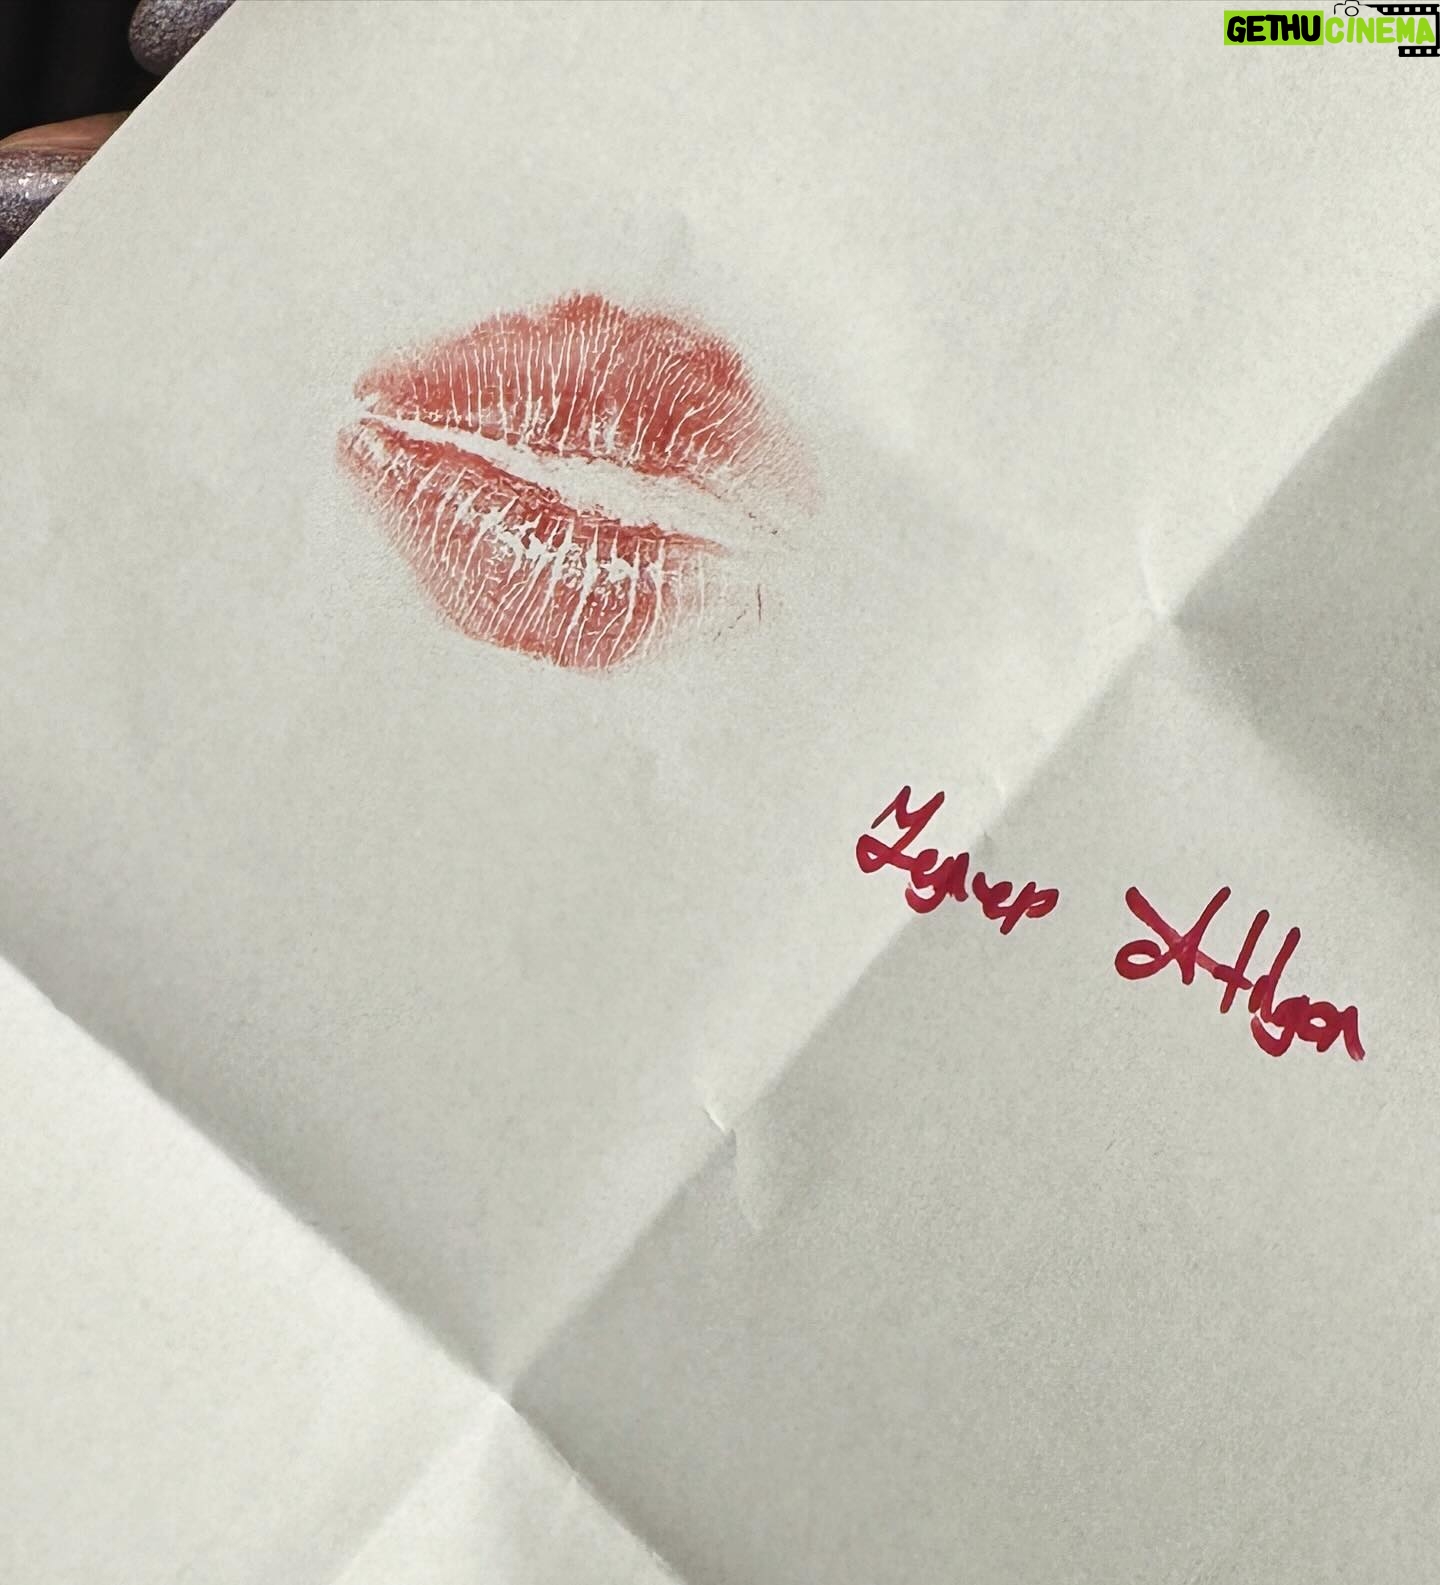 GETHU CINEMA
Zeynep Atılgan